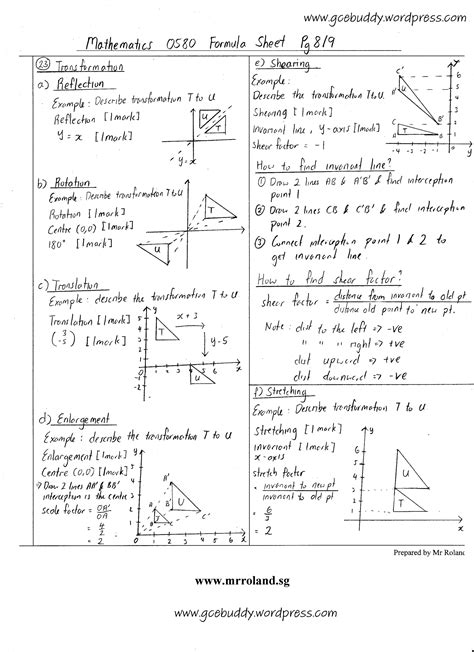 www.gcebuddy.wordpress.com
Mathematics 0580 Formula Sheet Pg 8/9
(23) Transformation
a) Reflection
Example: Describe transformation T to U
Reflection [1 mark]
y = x [1 mark]
U
T
y=x
b) Rotation
Example: Describe the transformation T to U
Rotation [1 mark]
Centre (0,0) [1 mark]
180° [1 mark]
T
U
c) Translation
Example: describe the transformation T to U
Translation [1 mark]
(3 -5) [1 mark]
x + 3
y-5
T
U
d) Enlargement
Example: describe the transformation T to U
Enlargement [1 mark]
Centre (0,0) [1 mark]
Draw 2 lines AA' & BB'
interception is the centre
scale factor = OA'/OA
= 4/2
= 2
y
A'
U
A
T
B
C
C'
1 2 3 4 5 6 x
e) Shearing
Example:
Describe the transformation T to U.
Shearing [1 mark]
invariant line, y-axis [1 mark]
Shear factor = -1
-4 -3 -2 -1
How to find invariant line?
① Draw 2 lines AB & A'B' & find interception
point 1
② Draw 2 lines CB & C'B' & find interception
point 2.
③ Connect interception point 1 & 2 to
get invariant line.
How to find shear factor?
shear factor = distance from invariant to old pt
distance old point to new pt
Note: dist to the left => -ve
" " " right => +ve
dist upward => +ve
dist downward => -ve
f) Stretching
Example: Describe transformation T to U
Stretching [1 mark]
invariant [1 mark]
x-axis
stretch factor
= invariant to new pt
invariant to old pt
= 6/3
= 2
y
U
T
x
Prepared by Mr Rolan
www.mrroland.sg
www.gcebuddy.wordpress.com